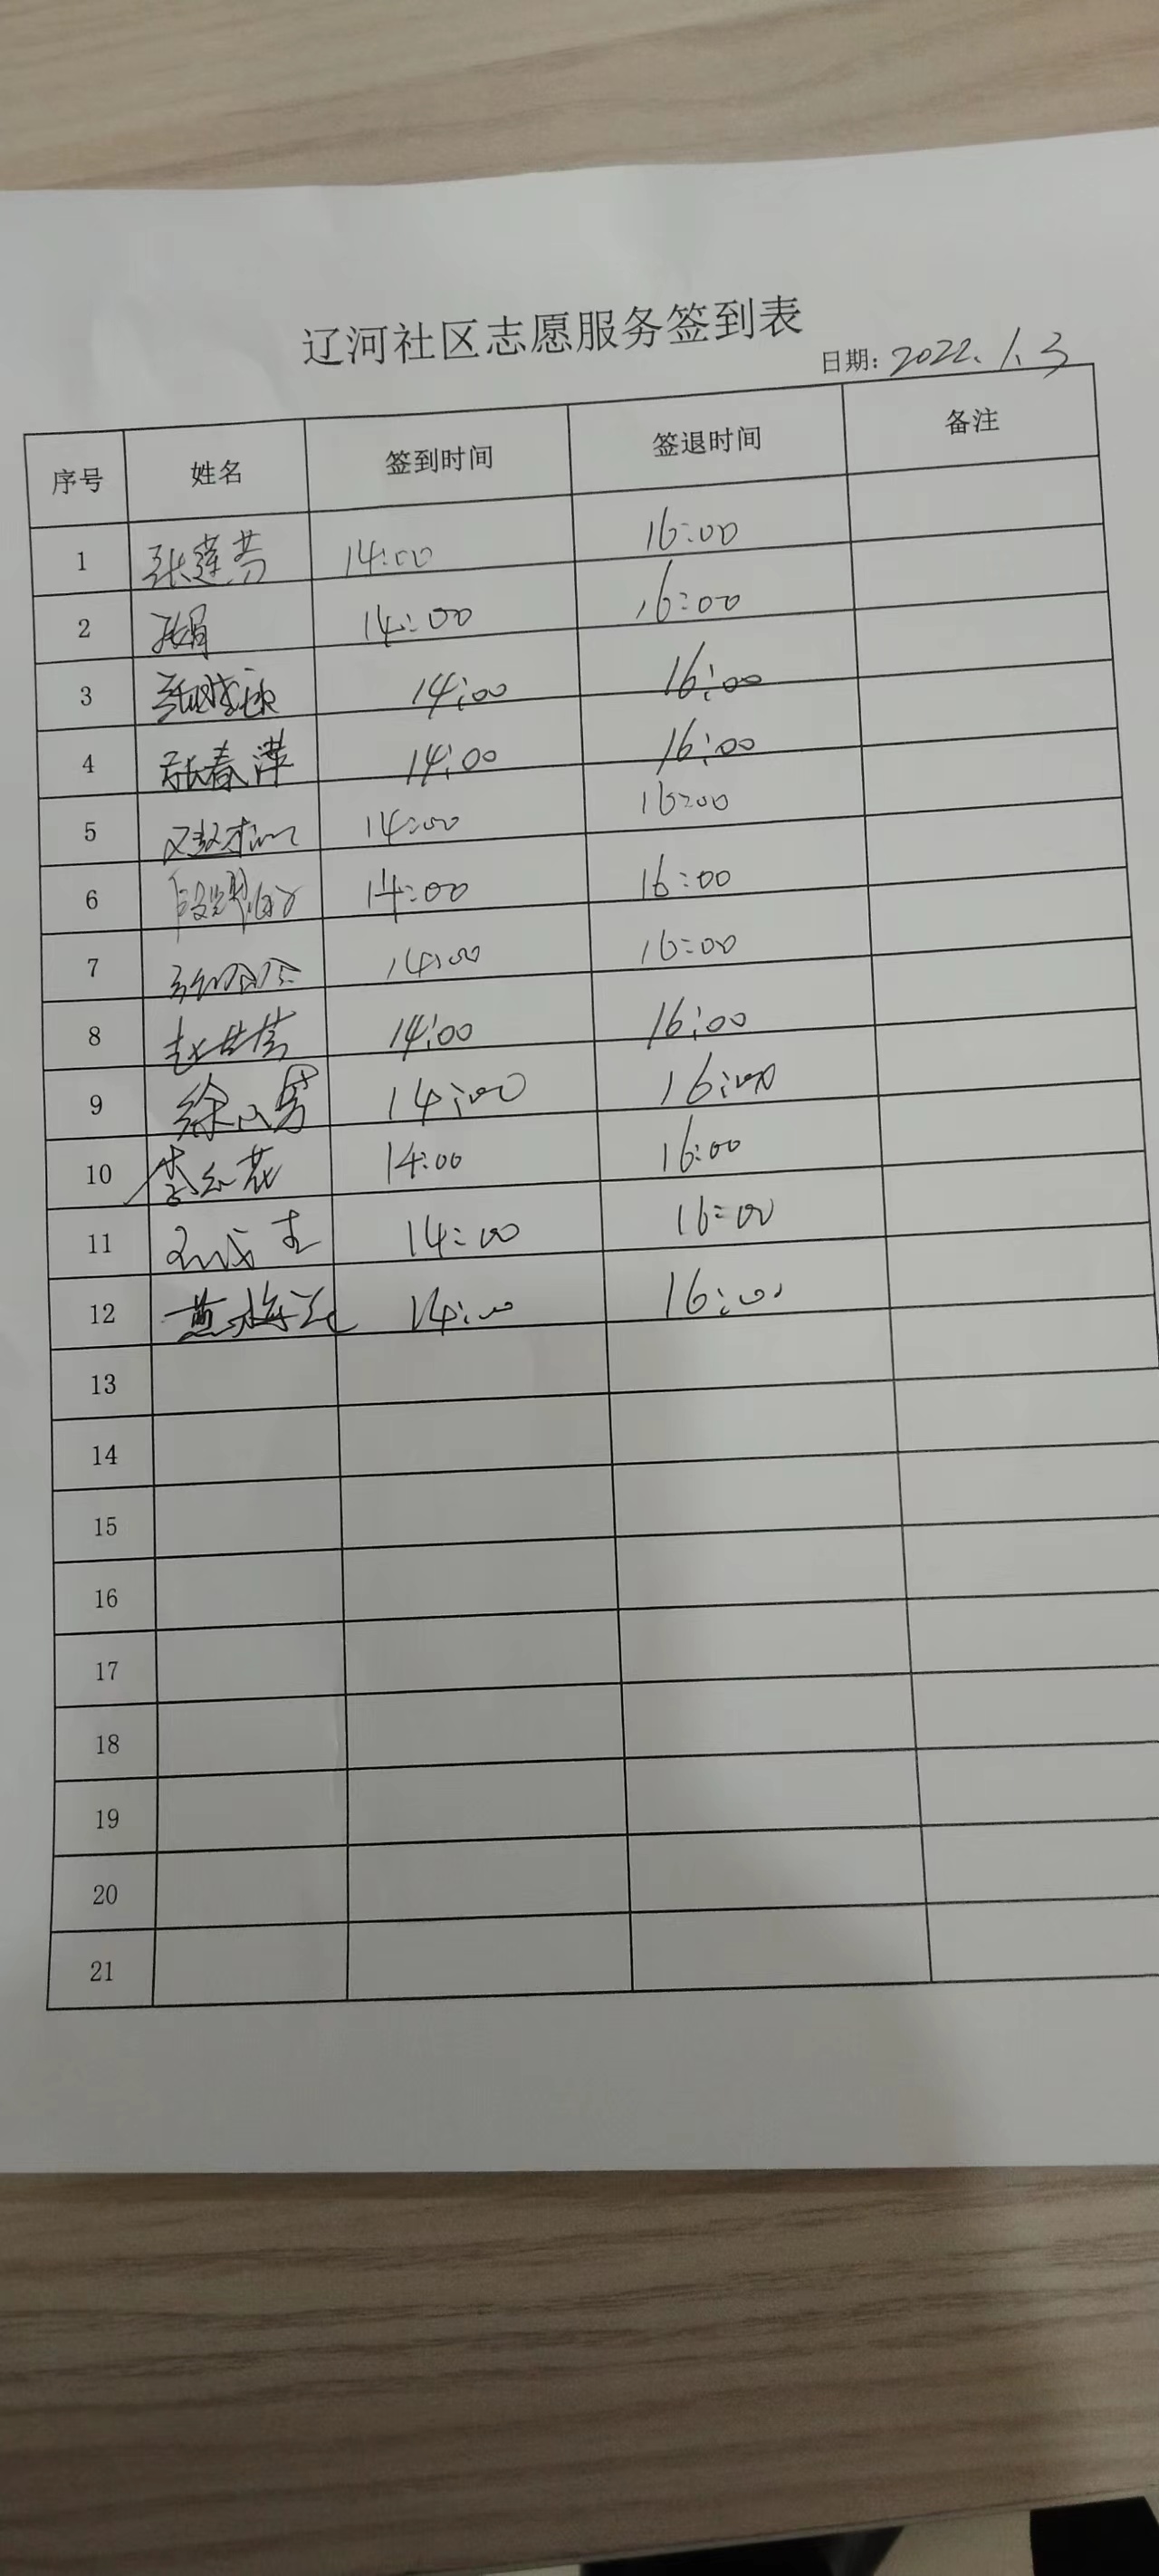 辽河社区志愿服务签到表
日期: 2022.1.3
序号 姓名 签到时间 签退时间 备注
1 张莲芳 14:00 16:00
2 张娟 14:00 16:00
3 14:00 16:00
4 张春萍 14:00 16:00
5 14:00 16:00
6 14:00 16:00
7 14:00 16:00
8 14:00 16:00
9 14:00 16:00
10 李红花 14:00 16:00
11 14:00 16:00
12 14:00 16:00
13
14
15
16
17
18
19
20
21